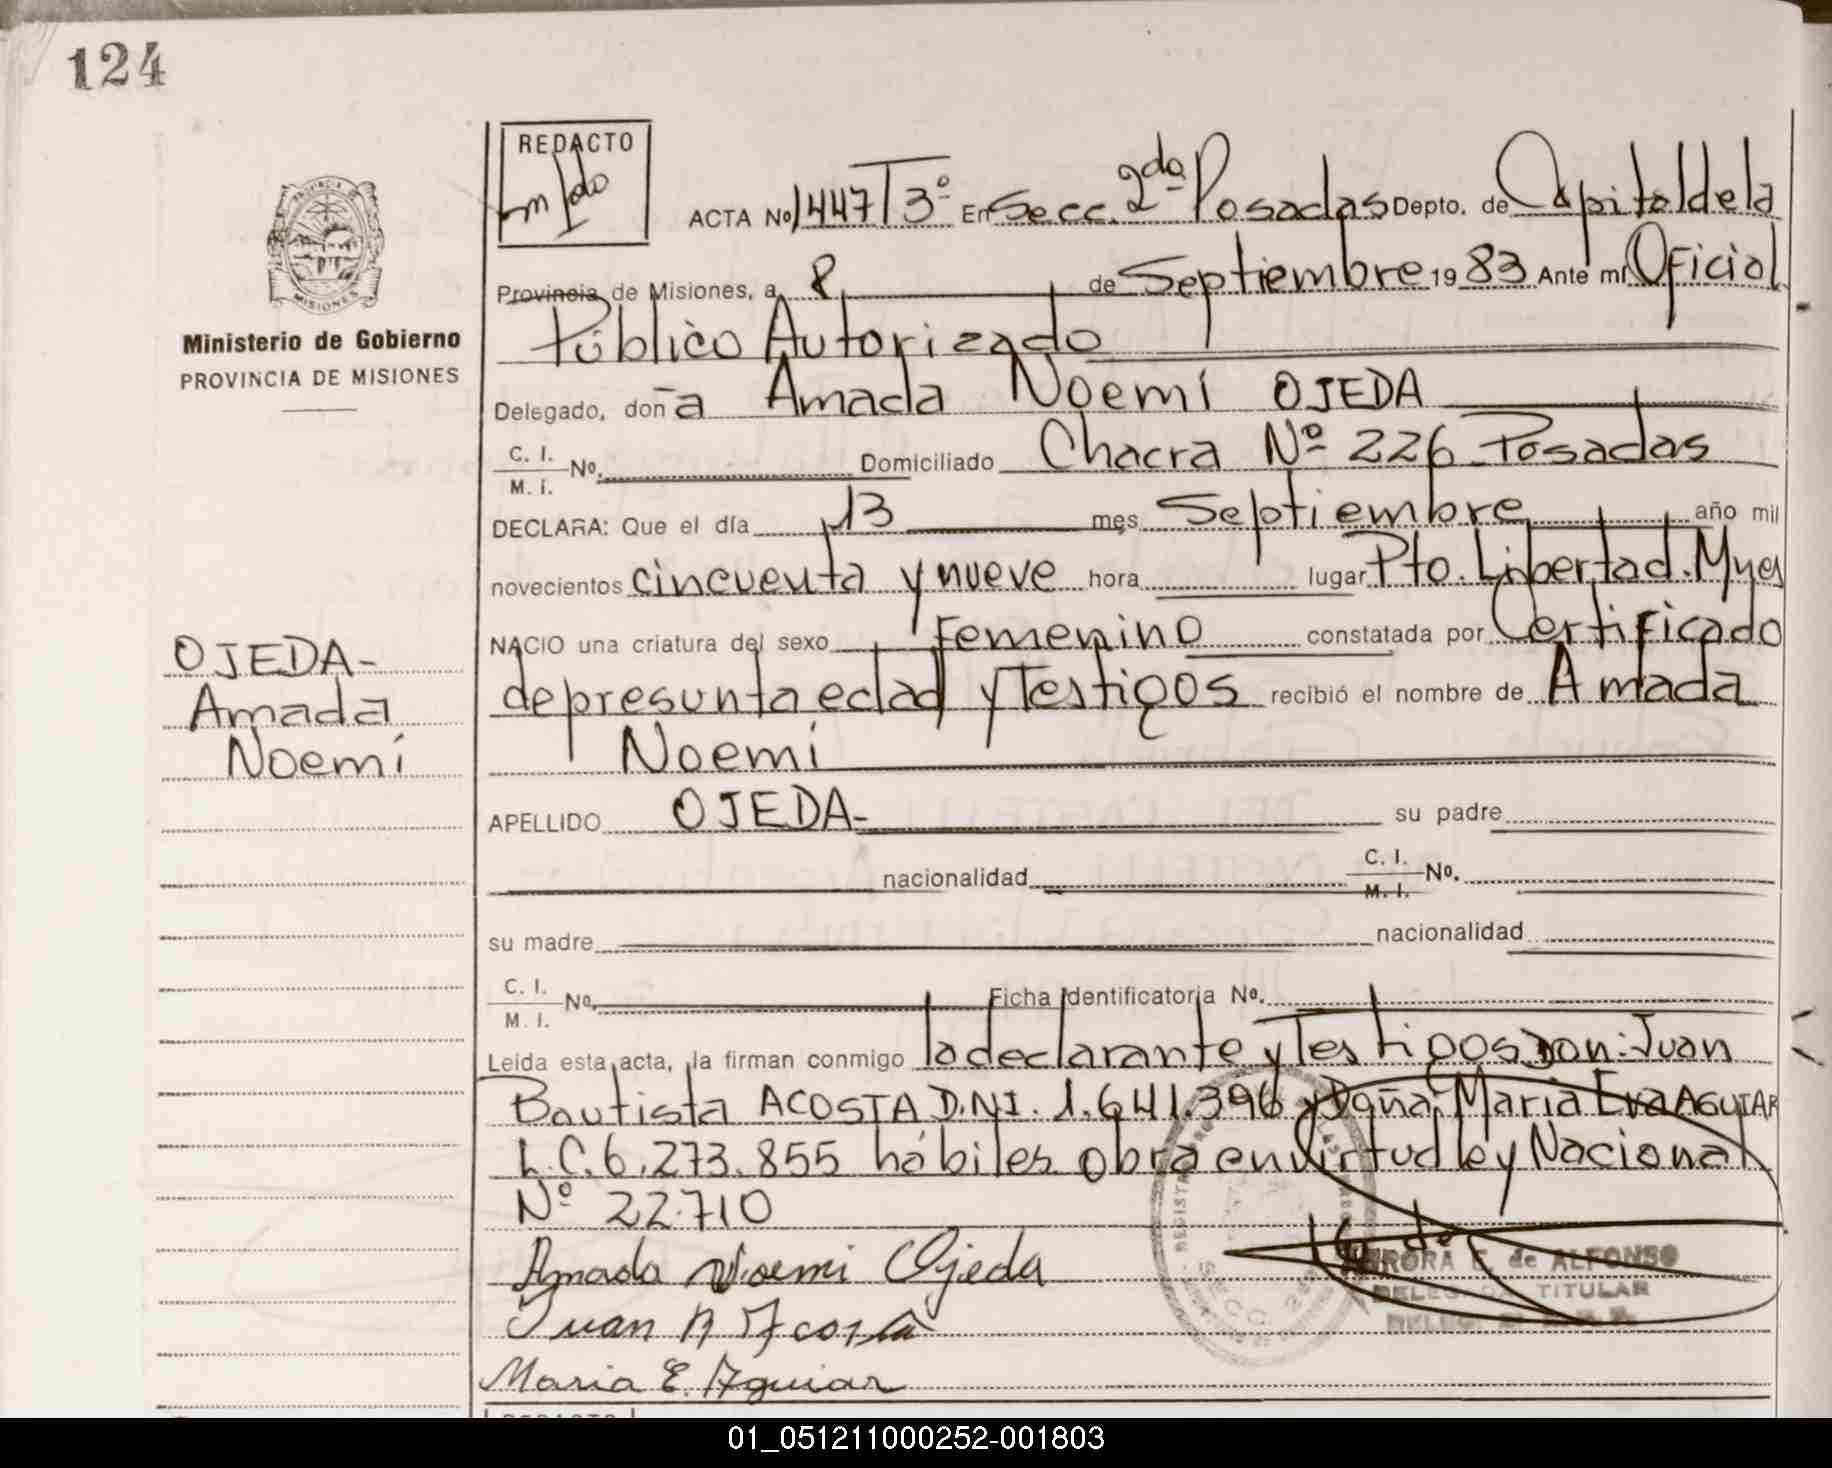 124
REDACTO
PROVINCIA DE
MISIONES
ACTA Nº 1447 T 3º En Secc. 2da Posadas Depto. de Capital de la
Provincia de Misiones, a 8 de Septiembre 1983 Ante mí Oficial
Público Autorizado
Ministerio de Gobierno
PROVINCIA DE MISIONES
Delegado, doña Amada Noemí OJEDA
C. I.
M. I. Nº. Domiciliado Chacra Nº 226 Posadas
DECLARA: Que el día 13 mes Septiembre año mil
novecientos cincuenta y nueve hora lugar Pto. Libertad. Mnes
NACIO una criatura del sexo Femenino constatada por Certificado
de presunta edad y Testigos recibió el nombre de Amada
Noemí
OJEDA-
Amada
Noemí
APELLIDO OJEDA- su padre
nacionalidad C. I.
M. I. Nº.
su madre nacionalidad
C. I.
M. I. Nº. Ficha Identificatoria Nº.
Leída esta acta, la firman conmigo la declarante y Testigos Don: Juan
Bautista ACOSTA D.N.I. 1.641.396 y Doña María Eva AGUIAR
L.C. 6.273.855 hábiles obra en virtud ley Nacional
Nº 22.710
Amada Noemi Ojeda
Juan B Acosta
Maria E. Aguiar
AURORA E. de ALFONSO
DELEGADA TITULAR
REDACTO
01_051211000252-001803